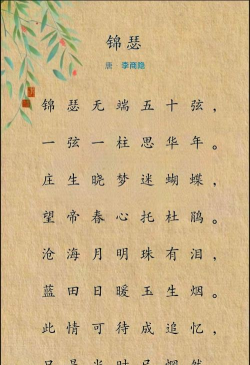 锦瑟
唐 李商隐
锦瑟无端五十弦，
一弦一柱思华年。
庄生晓梦迷蝴蝶，
望帝春心托杜鹃。
沧海月明珠有泪，
蓝田日暖玉生烟。
此情可待成追忆，
只是当时已惘然